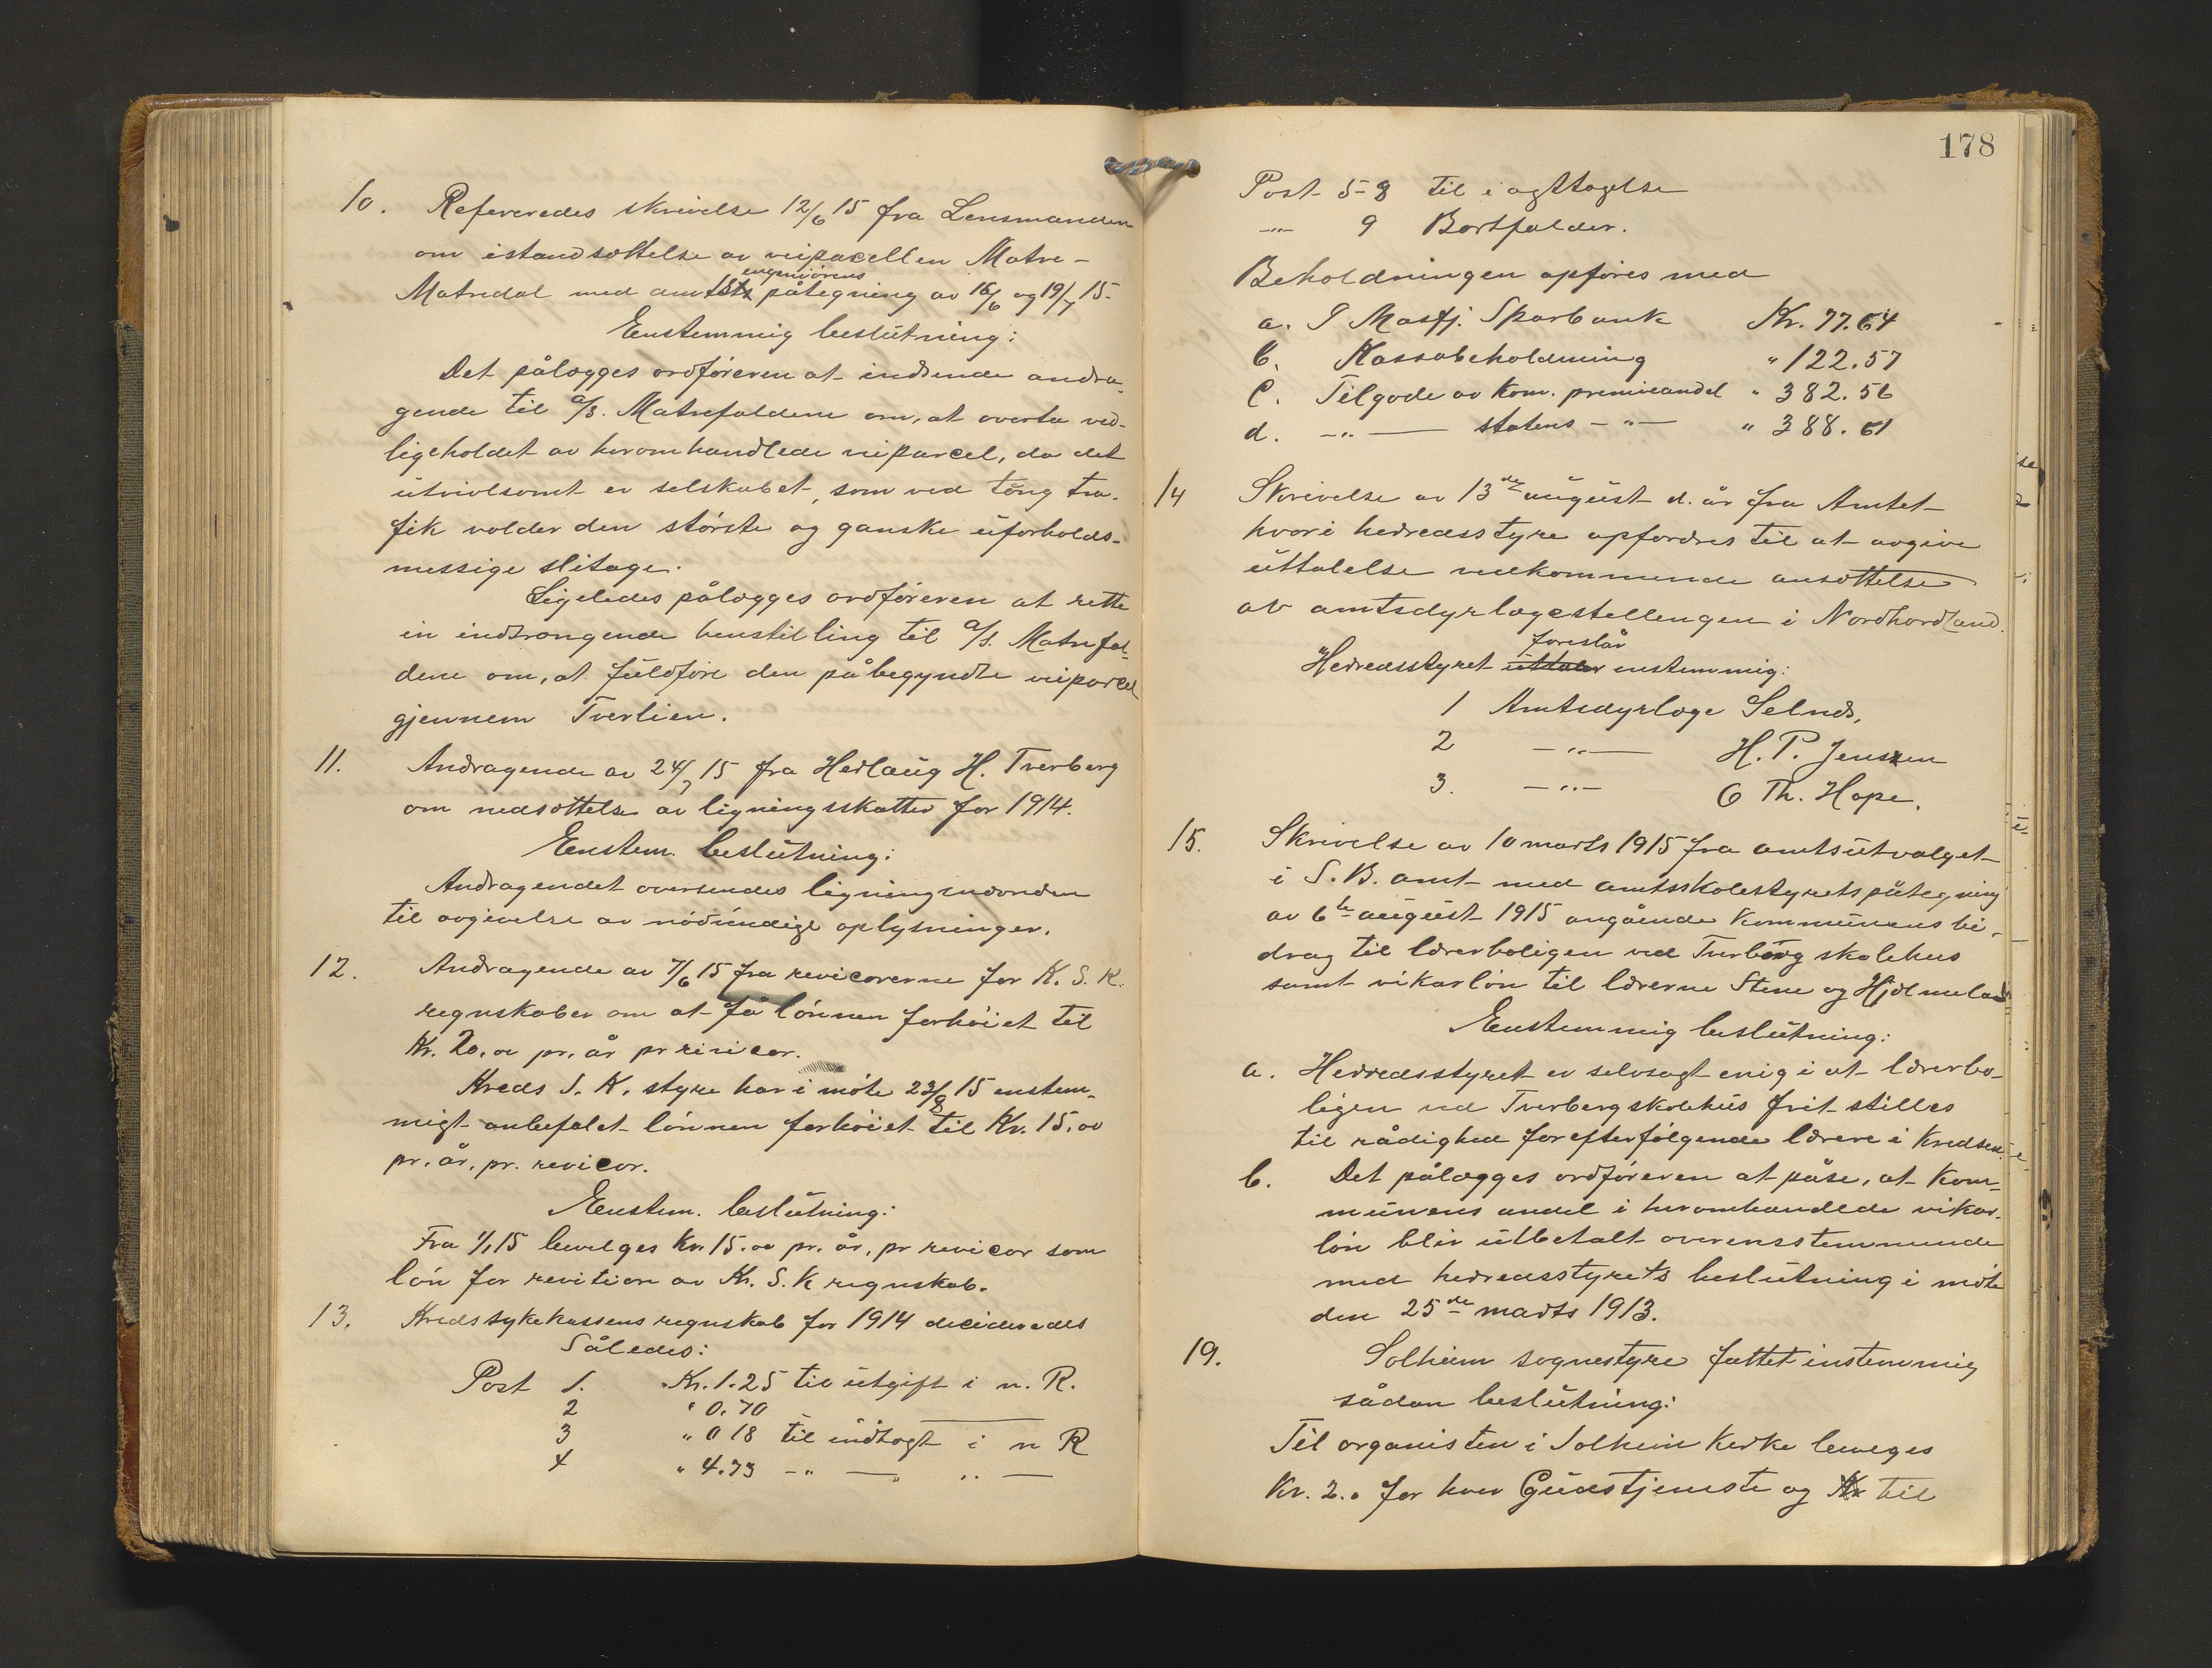 10. Refereredes skrivelse 12/6 15 fra Lensmanden
om istandsættelse av veiparcellen Matre-
engeniörens
Matredal med amtets påtegning av 16/6 og 19/7 15.
Enstemmig beslutning:
Det pålægges ordföreren at indsende andra-
gende til A/S. Matrefaldene om, at overta ved-
ligeholdet av heromhandlede veiparcel, da det
utvivlsomt er selskabet, som ved tung tra-
fik volder den störste og ganske uforholds-
messige slitage.
Ligeledes pålægges ordföreren at rette
en indtrængende henstilling til A/S. Matrefal-
dene om, at fuldföre den påbegyndte veiparcel
gjennem Tverlien.
11. Andragende av 24/7 15 fra Herlaug H. Tverberg
om nedsættelse av ligningsskatten for 1914.
Enstem. beslutning:
Andragendet oversendes ligningsnevnden
til avgivelse av nödvendige oplysninger.
12. Andragende av 7/6 15 fra revicorerne for K. S. K.
regnskaber om at få lönnen forhöiet til
Kr. 20.00 pr. år pr revicor.
Kreds S. K. styre har i möte 23/8 15 enstem-
migt anbefalet lönnen forhöiet til Kr. 15.00
pr. år. pr. revicor.
Enstem. beslutning:
Fra 1/1 15 bevilges Kr. 15.00 pr. år, pr revicor som
lön for revition av Kr. S. K regnskab.
13. Kredssykekassens regnskab for 1914 decideredes
Således:
Post 1. Kr. 1.25 til utgift i n. R.
2 " 0.70
3 " 0 18 til indtægt i n R
4 " 4.73 -"- -"-
178
Post 5-8 til iagttagelse
-"- 9 Bortfalder.
Beholdningen opföres med
a. I Masfj. Sparbank Kr. 77.64
b. Kassabeholdning " 122.57
c. Tilgode av kom. premieandel " 382.56
d. -"- statens -"- " 388.61
14 Skrivelse av 13de august d. år fra Amtet
hvori herredsstyre opfordres til at avgive
uttalelse vedkommende ansættelse
av amtsdyrlægestellengen i Nordhordland.
foreslår
Herredsstyret uttaler enstemmig:
1 Amtsdyrlæge Selnes,
2 -"- H. P. Jensen
3. -"- O Th. Hope.
15. Skrivelse av 10 marts 1915 fra amtsutvalget
i S. B. amt med amtsskolestyrets påtegning
av 6te august 1915 angående kommunens bi-
drag til lærerboligen ved Tverberg skolehus
samt vikarlön til lærerne Stene og Hjelmeland
Enstemmig beslutning:
a. Herredsstyret er selvsagt enig i at lærerbo-
ligen ved Tverberg skolehus frit stilles
til rådighed for efterfölgende lærere i kredsen.
b. Det pålægges ordföreren at påse, at kom-
munens andel i heromhandlede vikar-
lön blir utbetalt overensstemmende
med herredsstyrets beslutning i möte
den 25de marts 1913.
19. Solheim sognestyre fattet enstemmig
sådan beslutning:
Til organisten i Solheim kirke beveges
Kr. 2.0 for hver Gudstjeneste og Kr til